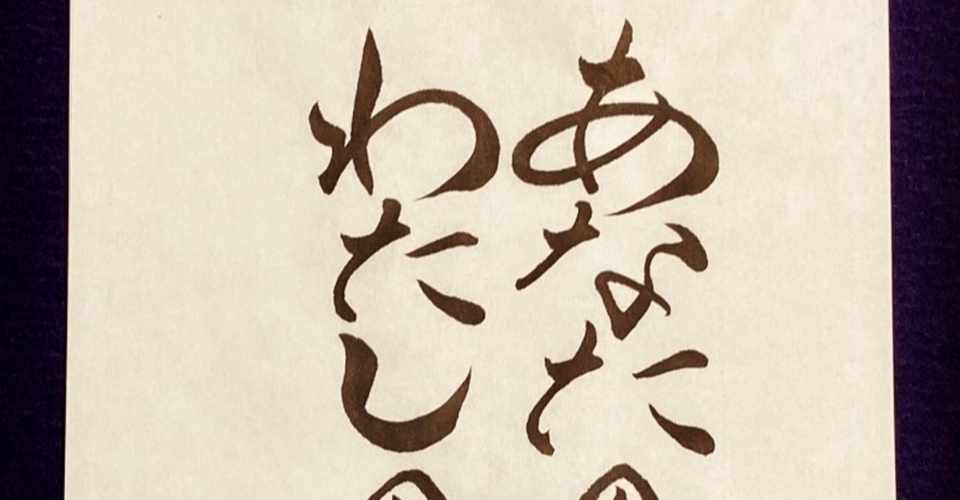 あなたの
わたしの